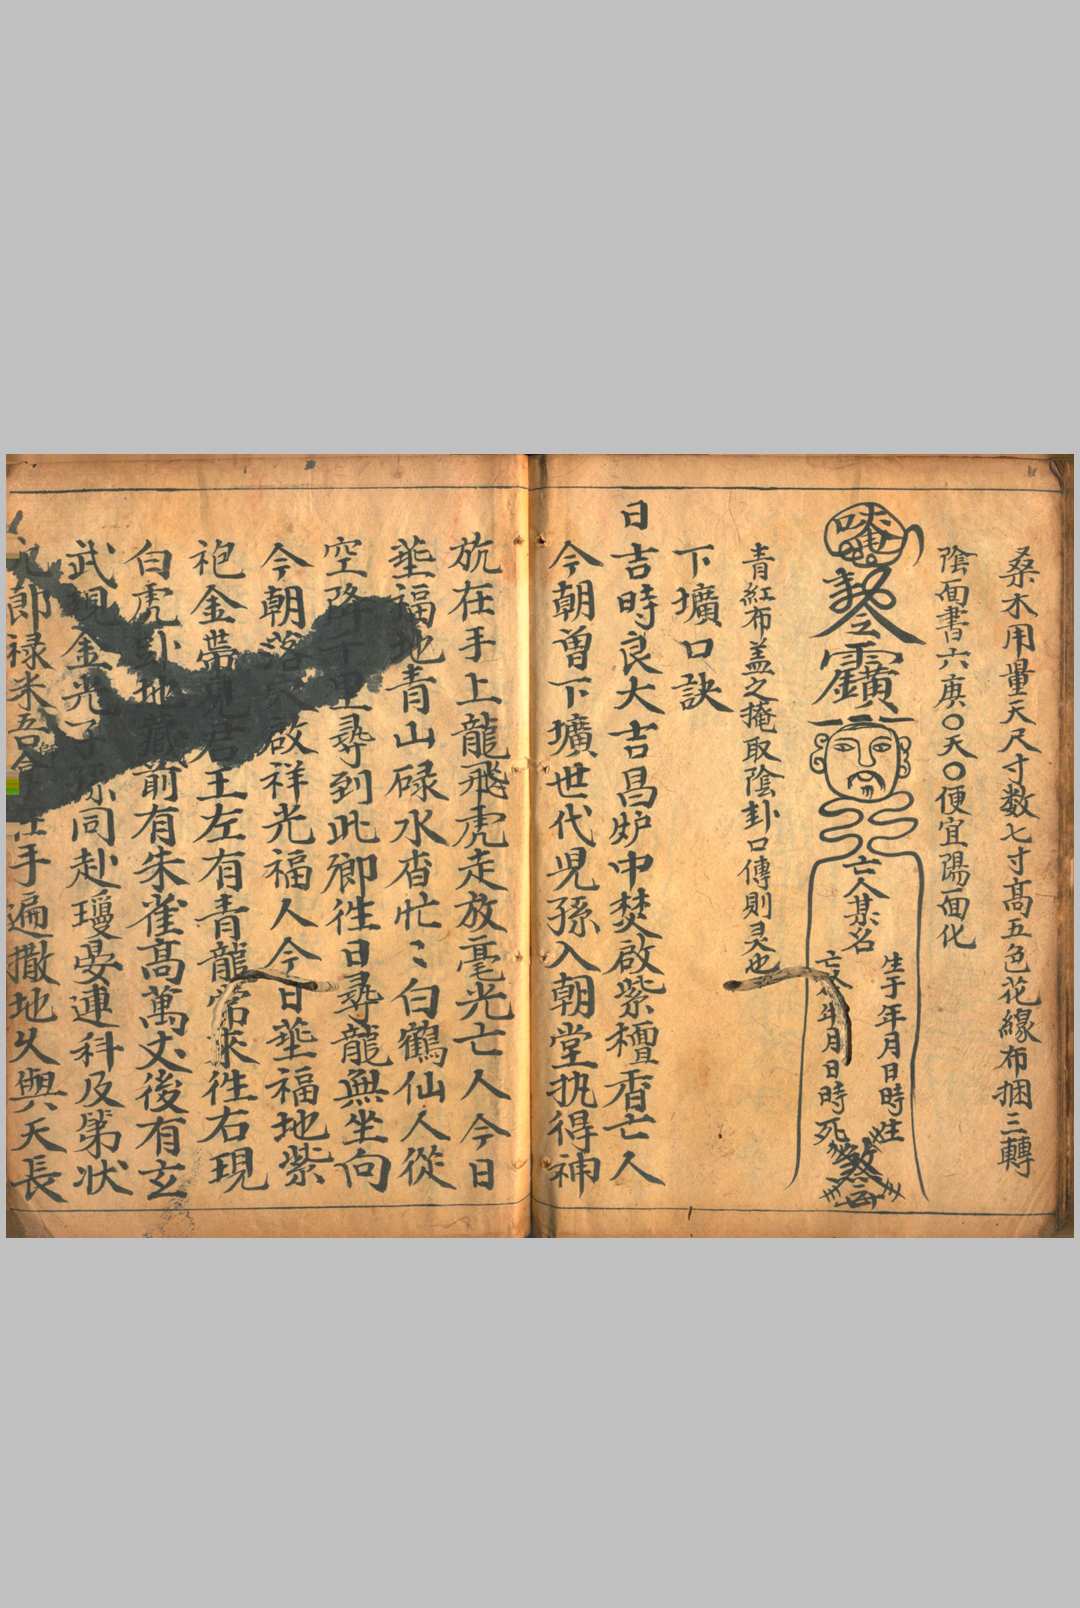 桑木用量天尺寸数七寸高五色花緣布捆三轉
陰面書六庚〇天〇便宜陽面化
亡人某名
生于年月日時生
亡于年月日時死
青紅布蓋之掩取陰卦口傳則灵也
下壙口訣
日吉時良大吉昌炉中焚啟紫檀香亡人
今朝曽下壙世代児孫入朝堂执得神
在手上龍飛虎走放毫光亡人今日
塟福地青山碌水杳忙〻白鶴仙人從
空降千里尋到此鄉徃日尋龍無坐向
今朝落啟祥光福人今日塟福地紫
袍金帶見君王左有青龍常來徃右現
白虎卦地藏前有朱雀高萬丈後有玄
武現金光子孫同赴瓊晏連科及第状
元郎禄米吾手遍撒地久與天長